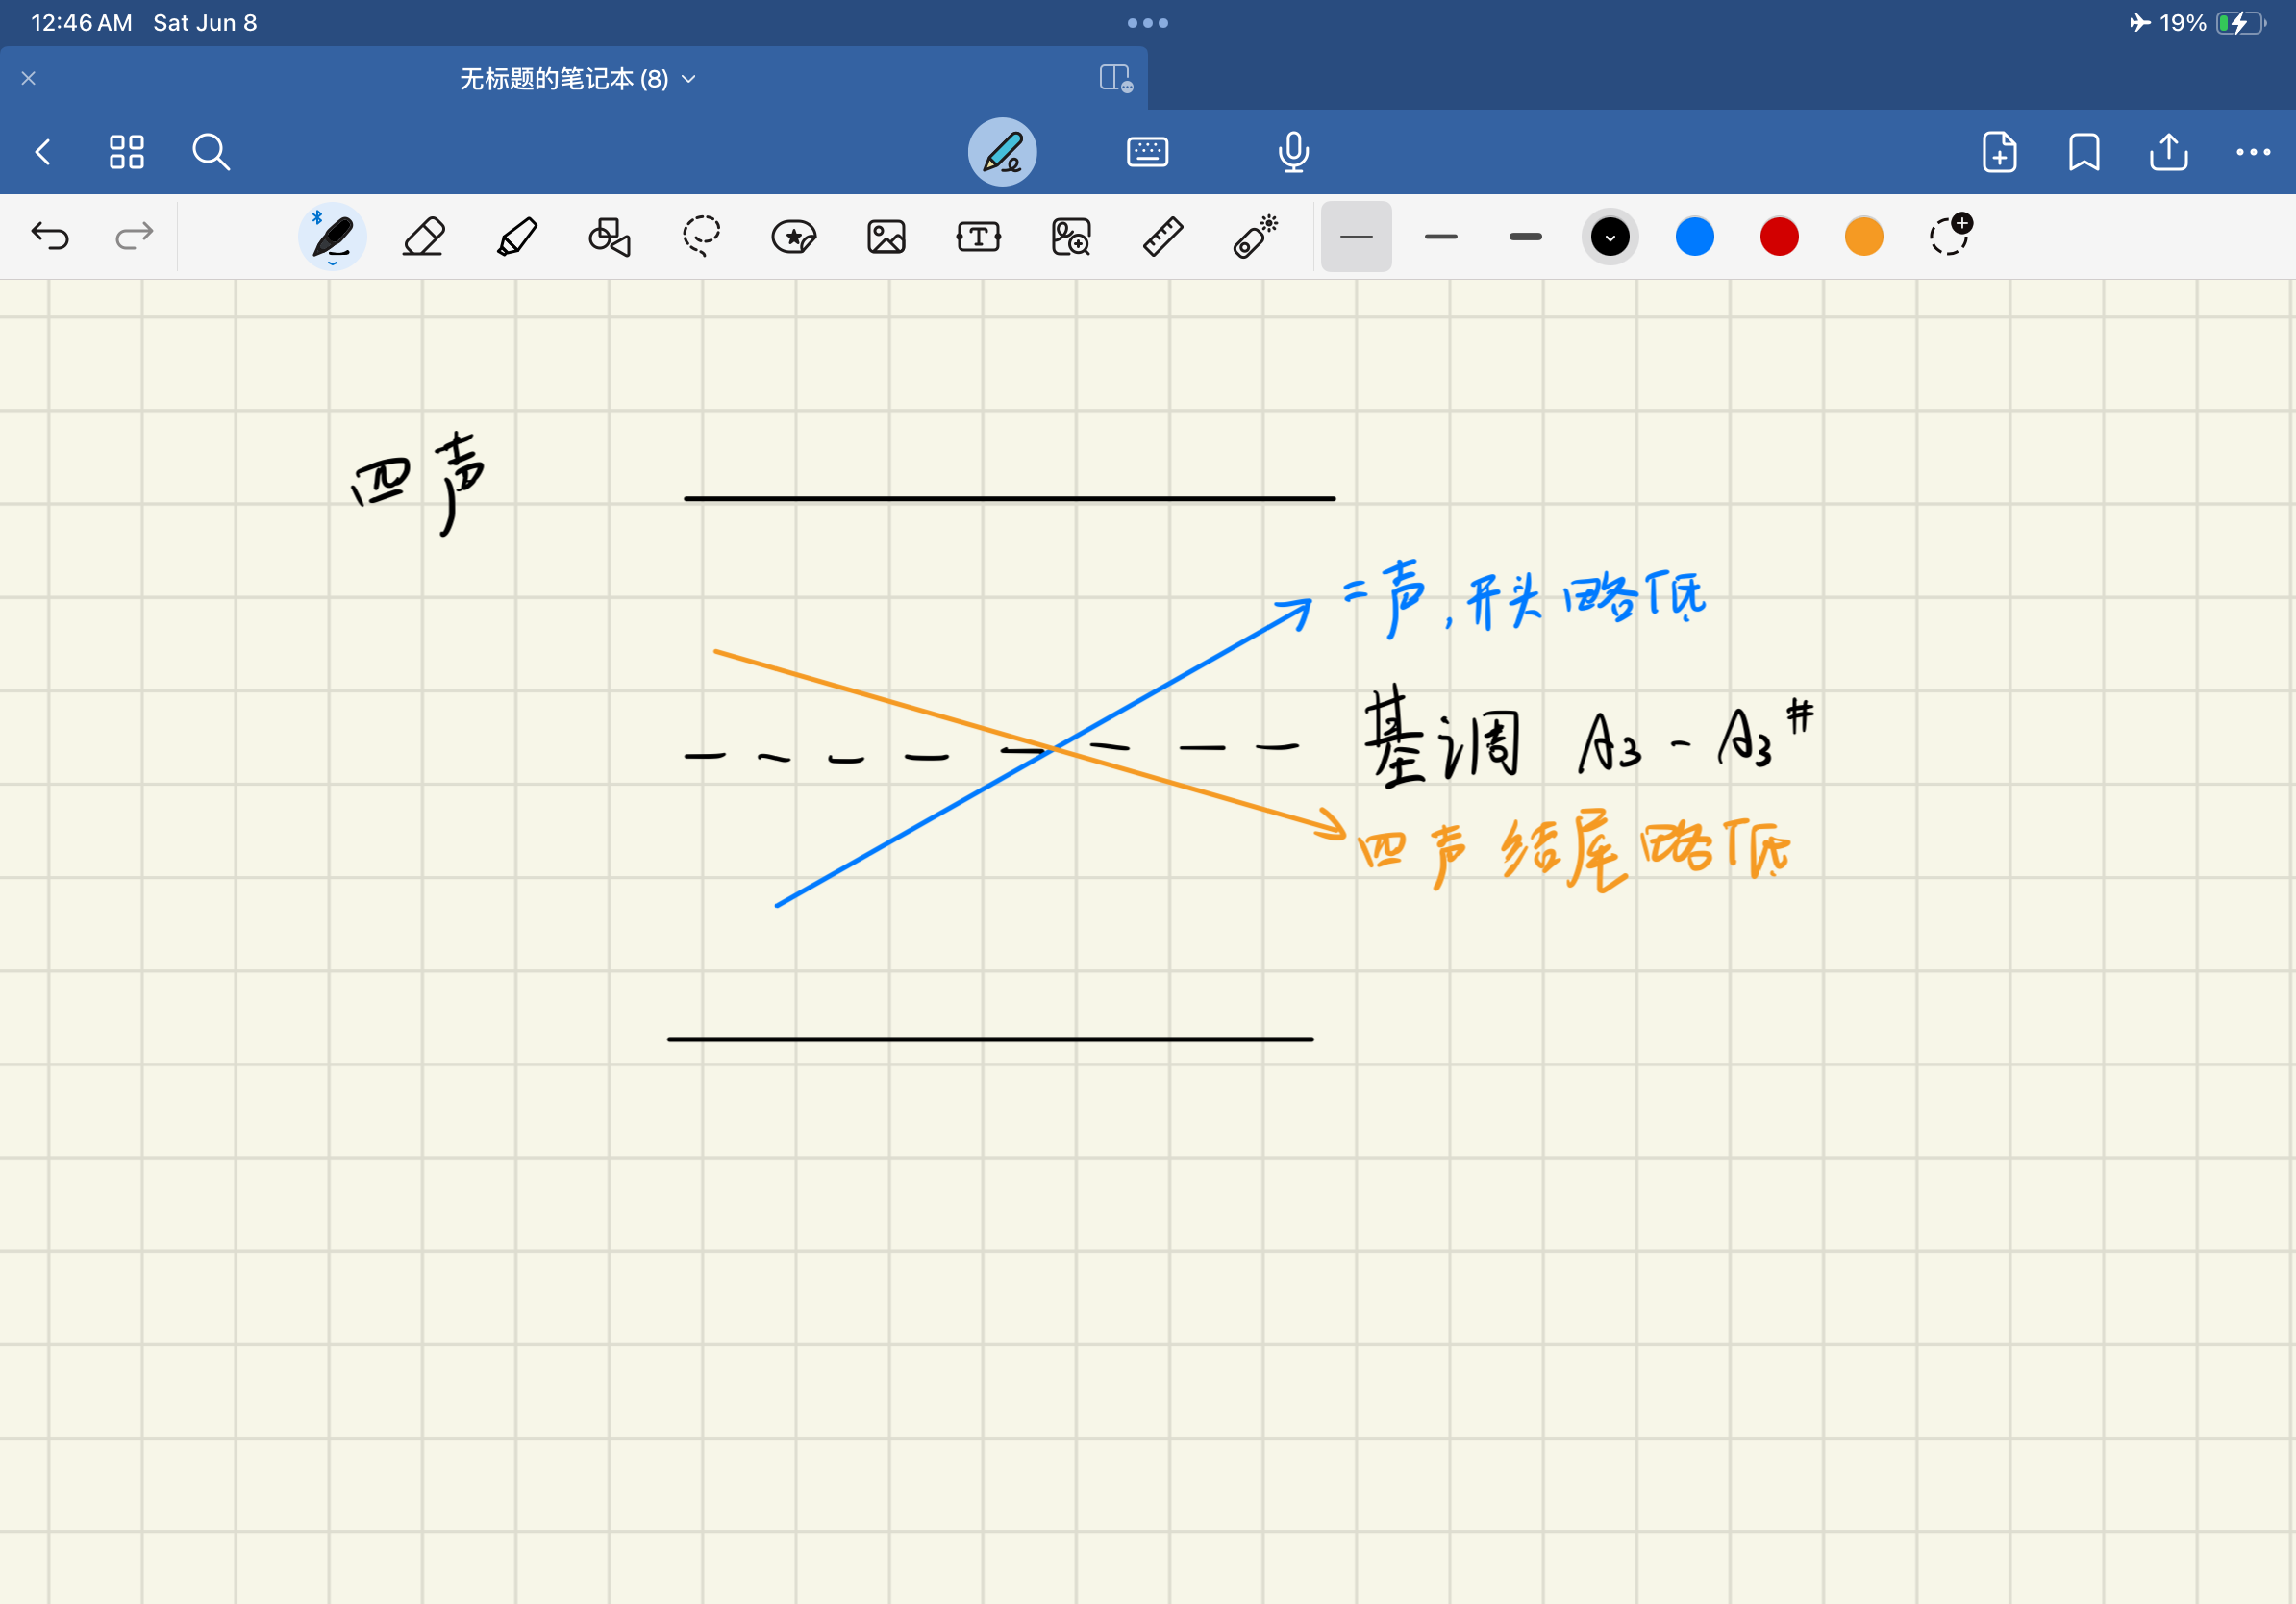 12:46 AM Sat Jun 8
19%
无标题的笔记本 (8)
四声
二声,开头略低
基调 A3 - A3#
四声结尾略低